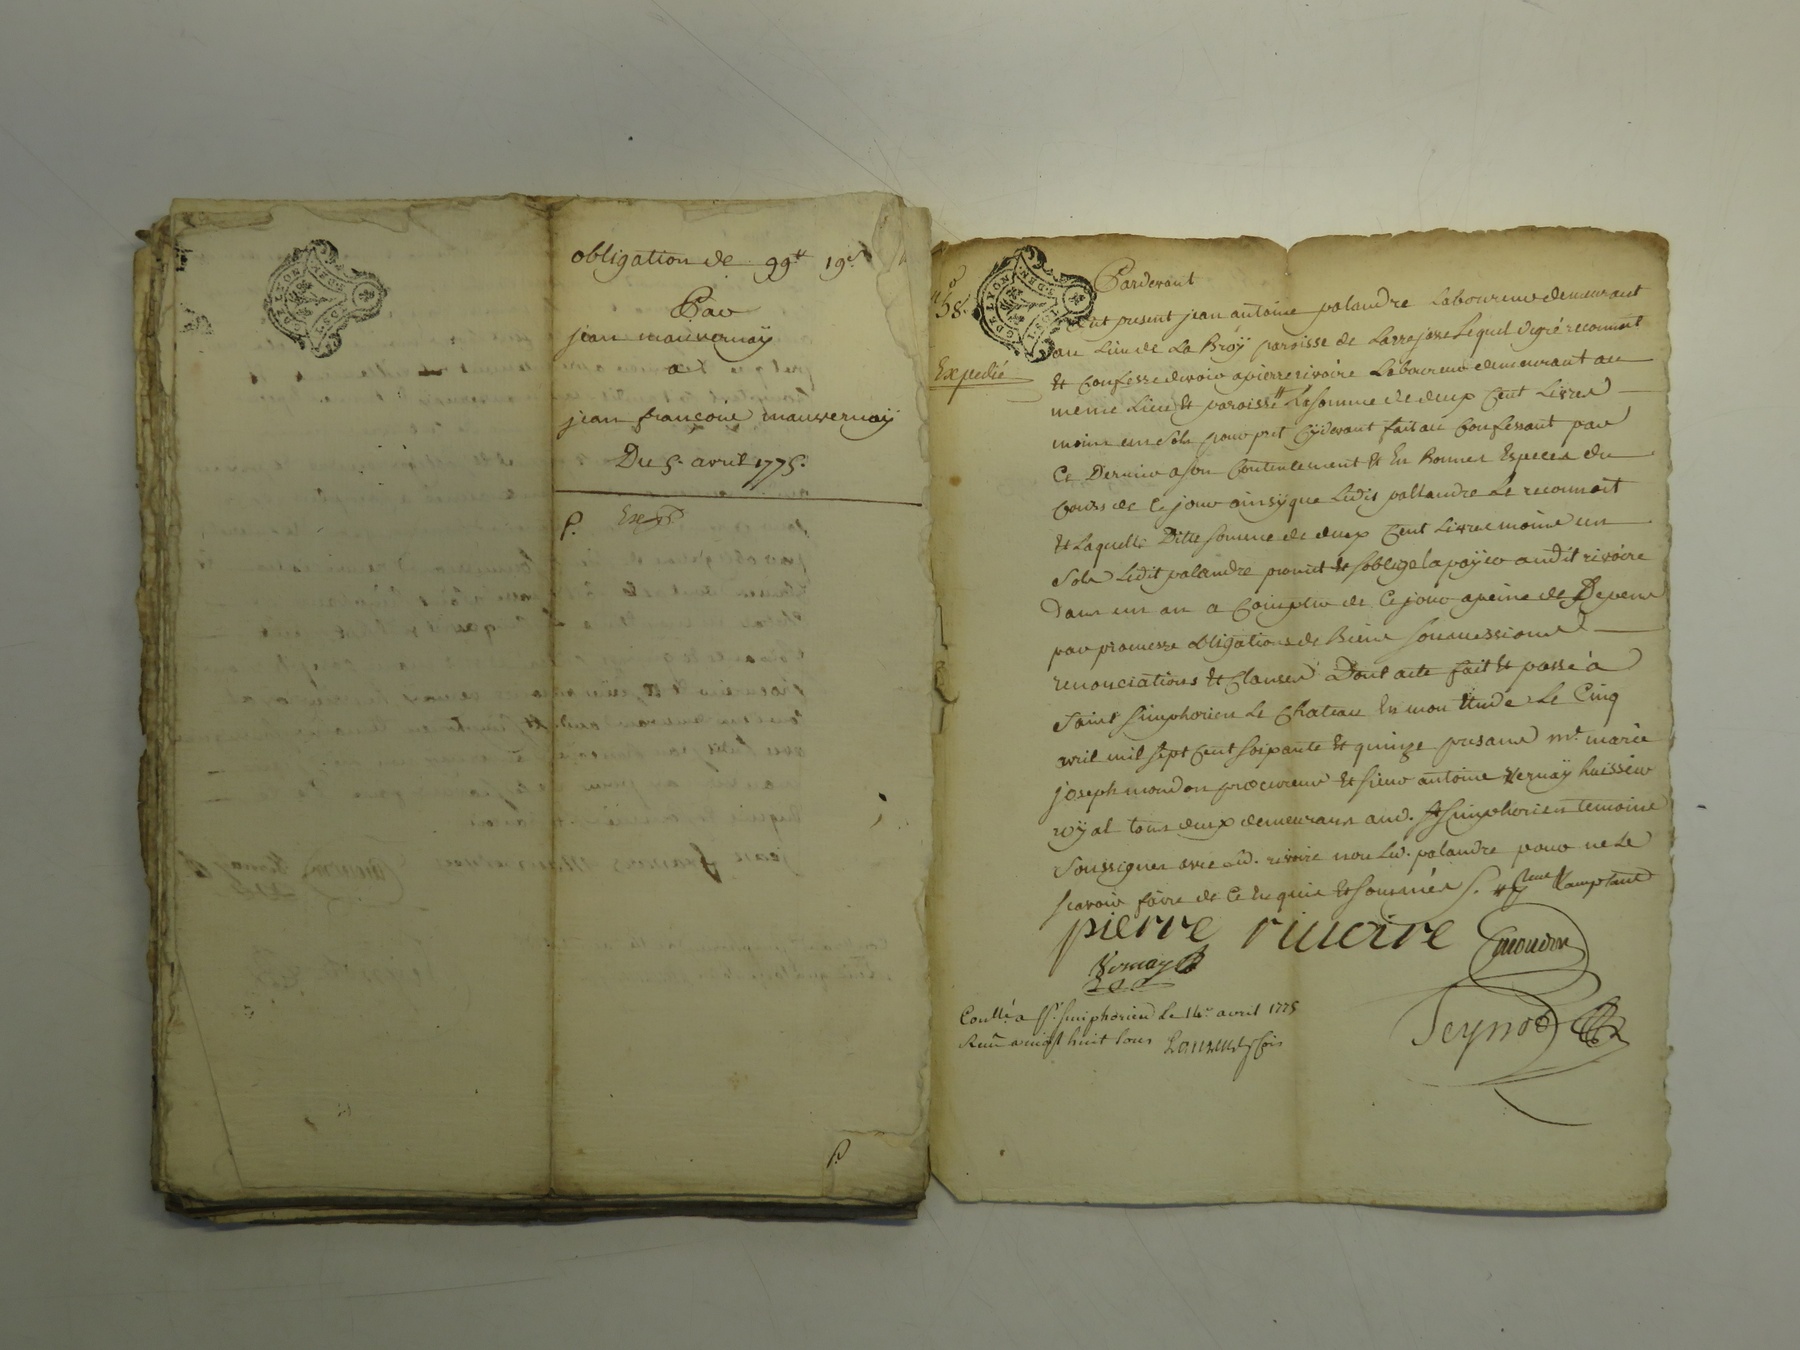 obligation de 99tt 19s
Par
jean mauvernaÿ
a
jean françois mauvernaÿ
Du 5. avril 1775.
P. Exp.
G DE LYON
n° 58.
Expedié
Pardevant
fut present jean antoine palandre Laboureur demeurant
au Lieu de La Broÿ paroisse de Larrajasse Lequel de gré reconnoit
et Confesse devoir a pierre rivoire Laboureur demeurant au
meme Lieu et paroisse La somme de deux Cent Livres
moins un sols pour pret Cÿdevant fait au Confessant par
Ce Dernier a son Contentement et En Bonnes Especes du
Cours de Ce jour ainsÿ que Ledit pallandre Le reconnoit
et Laquelle Ditte somme de deux Cent Livres moins un
sols Ledit palandre promet et soblige la paÿer audit rivoire
Dans un an a Compter de Ce jour apeine de Depens
par promesse obligations de Biens soumissions
renonciations et Clauses Dont acte fait et passé à
Saint Simphorien Le Chateau En mon Etude Le Cinq
avril mil sept Cent soixante et quinze presans mt. marie
joseph mondon procureur et sieur antoine Vernaÿ huissier
roÿal tous deux demeurans aud. St Simphorien temoins
Soussignes avec Led. rivoire non Led. palandre pour ne Le
scavoir faire de Ce Enquis et sommés
pierre riuoire
Vernay
Peynod
Conllé a St. simphorien Le 14e avril 1775
huit sous